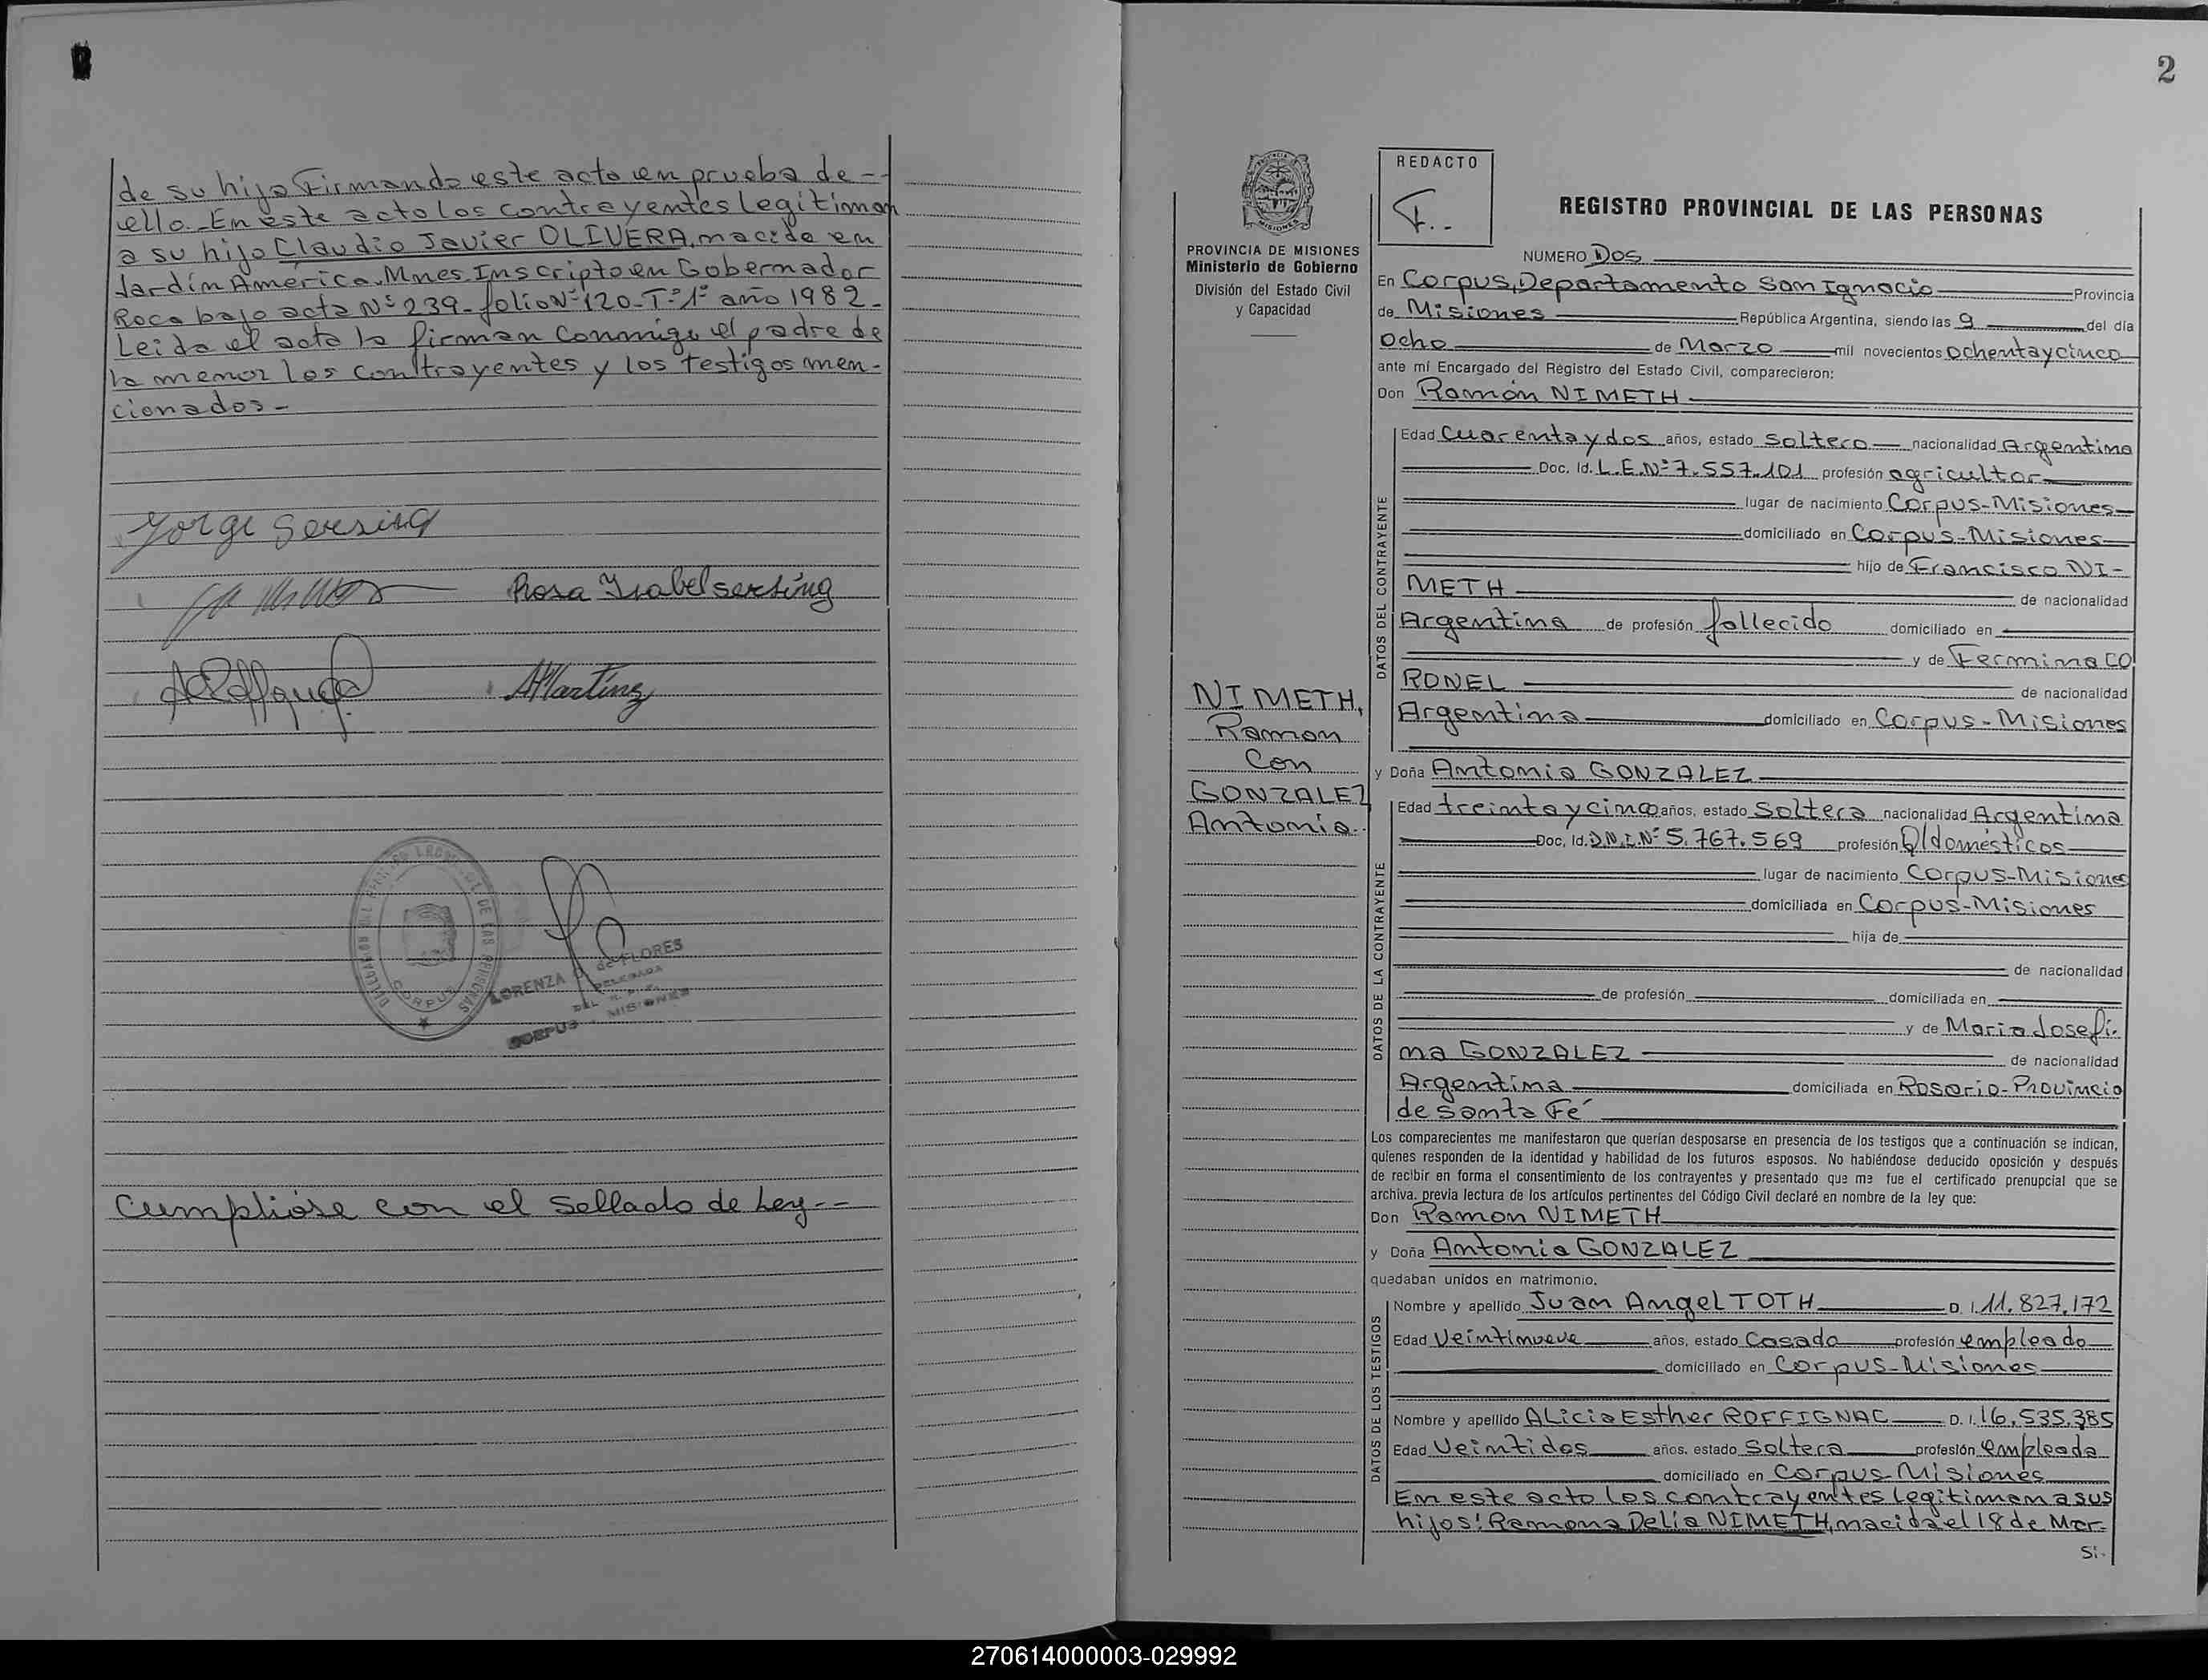 de su hijo Firmando este acto en prueba de --
ello. En este acto los contrayentes legitiman
a su hijo Claudio Javier OLIVERA, nacido en
Jardín América. Mnes. Inscripto en Gobernador
Roca bajo acta Nº 239_ folio Nº 120_ Tº 1º año 1982_
Leida el acta la firman conmigo el padre de
la menor los contrayentes y los testigos men-
cionados_
Jorge Sersing
Rosa Isabel sersing
AMartinez
LORENZA de FLORES
DELEGADA
CORPUS - MISIONES
CORPUS
Cumplióse con el sellado de Ley --
2
PROVINCIA DE MISIONES
Ministerio de Gobierno
División del Estado Civil
y Capacidad
NIMETH,
Ramon
Con
GONZALEZ
Antonia.
REDACTO
F..
REGISTRO PROVINCIAL DE LAS PERSONAS
NUMERO Dos
En Corpus, Departamento San Ignacio Provincia
de Misiones República Argentina, siendo las 9 del día
Ocho de Marzo mil novecientos Ochentaycinco
ante mí Encargado del Registro del Estado Civil, comparecieron:
Don Ramón NIMETH
DATOS DEL CONTRAYENTE
Edad Cuarentaydos años, estado Soltero nacionalidad Argentina
Doc. Id. L.E.Nº 7.557.101 profesión agricultor
lugar de nacimiento Corpus-Misiones
domiciliado en Corpus-Misiones
hijo de Francisco NI-
METH de nacionalidad
Argentina de profesión fallecido domiciliado en
y de Fermina CO
RONEL de nacionalidad
Argentina domiciliado en Corpus-Misiones
y Doña Antonia GONZALEZ
DATOS DE LA CONTRAYENTE
Edad treintaycinco años, estado Soltera nacionalidad Argentina
Doc. Id. D.N.I.Nº 5.767.569 profesión Q/domésticos
lugar de nacimiento Corpus-Misiones
domiciliada en Corpus-Misiones
hija de
de nacionalidad
de profesión domiciliada en
y de Maria Josefi-
na GONZALEZ de nacionalidad
Argentina domiciliada en Rosario-Provincia
de Santa Fé
Los comparecientes me manifestaron que querían desposarse en presencia de los testigos que a continuación se indican,
quienes responden de la identidad y habilidad de los futuros esposos. No habiéndose deducido oposición y después
de recibir en forma el consentimiento de los contrayentes y presentado que me fue el certificado prenupcial que se
archiva, previa lectura de los artículos pertinentes del Código Civil declaré en nombre de la ley que:
Don Ramon NIMETH
y Doña Antonia GONZALEZ
quedaban unidos en matrimonio.
DATOS DE LOS TESTIGOS
Nombre y apellido Juan Angel TOTH D. I. 11.827.172
Edad Veintinueve años, estado Casado profesión empleado
domiciliado en Corpus-Misiones
Nombre y apellido ALicia Esther ROFFIGNAC D. I. 16.535.385
Edad Veintidos años, estado Soltera profesión empleada
domiciliado en Corpus-Misiones
En este acto los contrayentes legitiman a sus
hijos: Ramona Delia NIMETH, nacida el 18 de Mar-
Si-
270614000003-029992